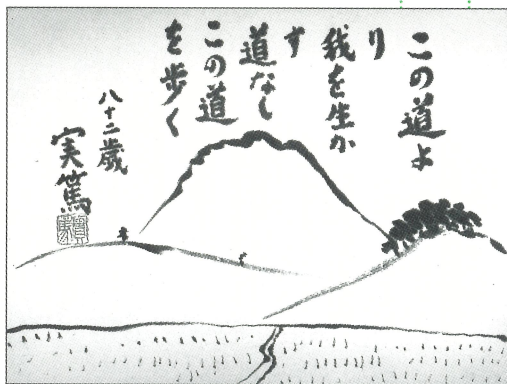 この道よ
り
我を生か
す
道なし
この道
を歩く
八十二歳
実篤